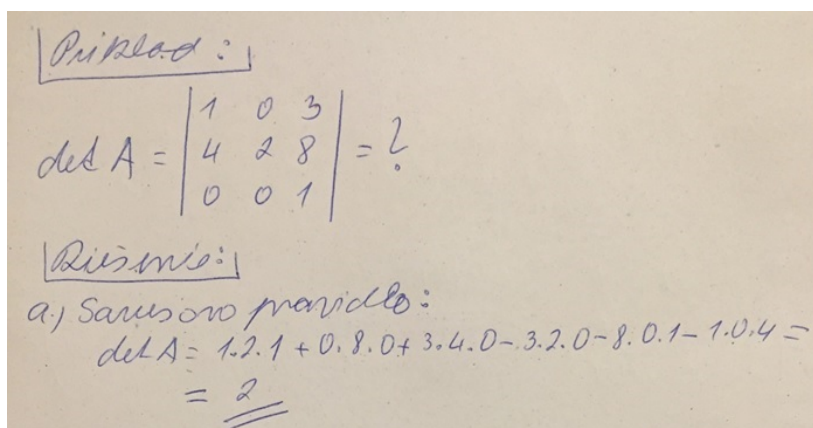 Príklad:
det A = | 1 0 3 |
| 4 2 8 | = ?
| 0 0 1 |
Riešenie:
a.) Sarusovo pravidlo:
det A = 1.2.1 + 0.8.0 + 3.4.0 - 3.2.0 - 8.0.1 - 1.0.4 =
= 2